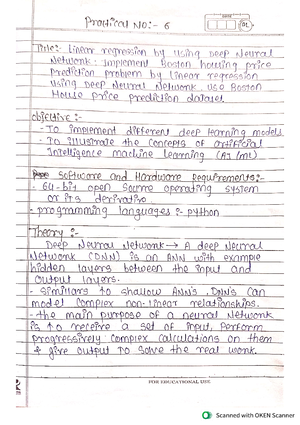 DATE
Practical No:- 6
Title:- Linear regression by using Deep Neural
Network: Implement Boston housing price
Prediction problem by linear regression
using Deep Neural network. Use Boston
House price prediction dataset.
objective :-
- To implement different deep learning models.
- To illustrate the concepts of artificial
Intelligence machine learning (AI/ML)
Software and Hardware Requirements:-
- 64-bit open source operating system
or its derivative.
- programming languages :- python
Theory :-
Deep Neural Network → A deep Neural
Network (DNN) is an ANN with example
hidden layers between the input and
output layers.
- Similars to shallow ANN's, DNN's can
model complex non-linear relationships.
- the main purpose of a neural Network
is to receive a set of input, perform
progressively complex calculations on them
& give output to solve the real work.
FOR EDUCATIONAL USE
Scanned with OKEN Scanner